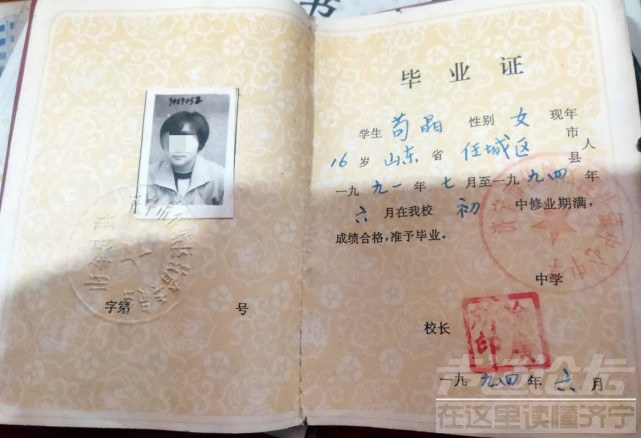 书
毕业证
学生 苟晶 性别 女 现年
16 岁 山东 省 任城区 市县 人
一九九一 年 七 月至一九九四 年
六 月在我校 初 中修业期满,
成绩合格,准予毕业。
中学
校长
一九九四年 六 月
字第 号
在这里读懂济宁